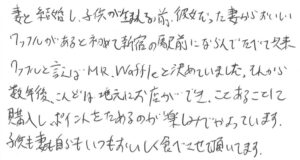 妻と結婚し、子供が生まれる前、彼女だった妻からおいしい
ワッフルがあると初めて新宿の駅前にならんでたべて以来
ワッフルと言えばMR.Waffleと決めていました。それから
数年後、こんどは地元にお店ができ、ことあるごとに
購入しポイントをためるのが楽しみでやっています。
子供も妻も自分もいつもおいしく食べさせて頂いてます。